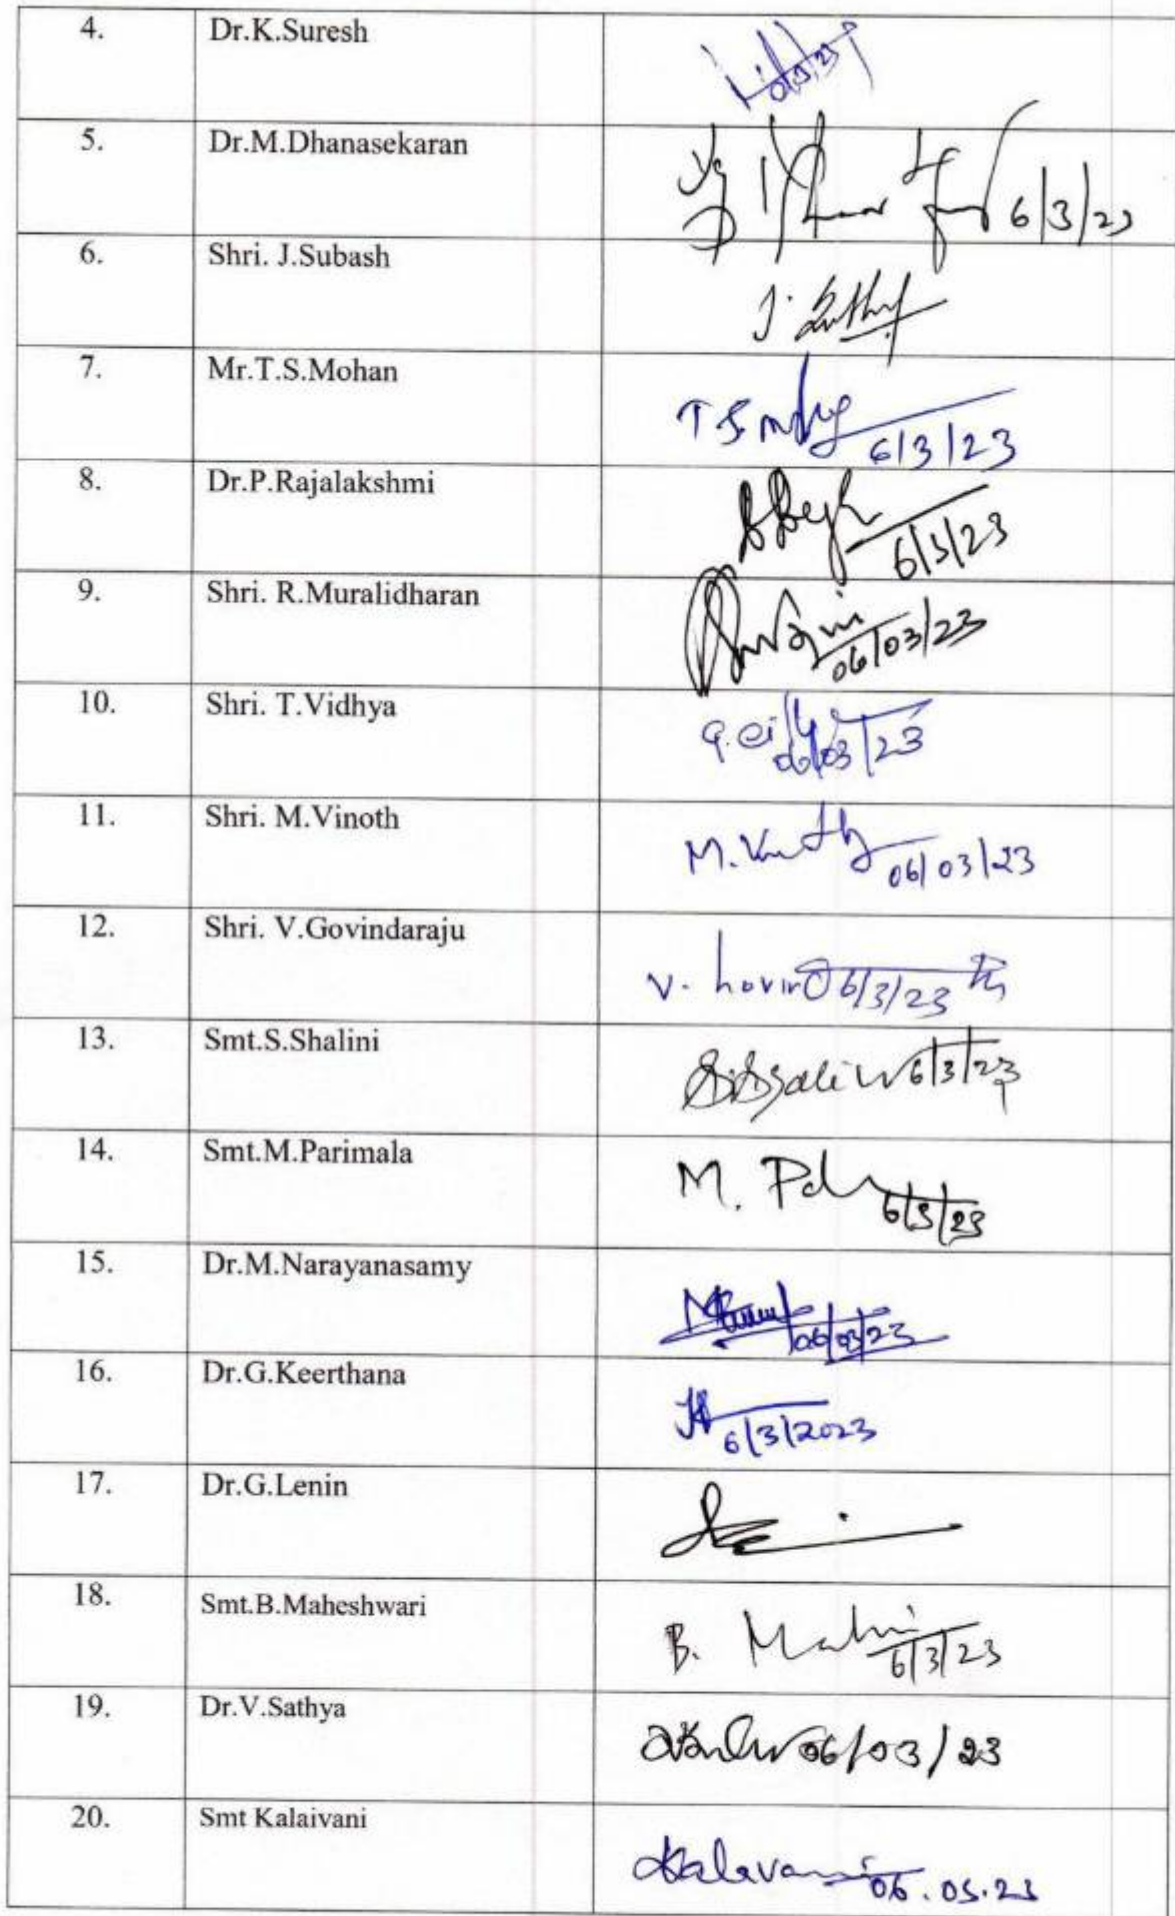 4. Dr.K.Suresh
5. Dr.M.Dhanasekaran 6/3/23
6. Shri. J.Subash J.
7. Mr.T.S.Mohan T S 6/3/23
8. Dr.P.Rajalakshmi 6/3/23
9. Shri. R.Muralidharan 06/03/23
10. Shri. T.Vidhya 06/03/23
11. Shri. M.Vinoth M. 06/03/23
12. Shri. V.Govindaraju V. 6/3/23
13. Smt.S.Shalini 6/3/23
14. Smt.M.Parimala M. 6/3/23
15. Dr.M.Narayanasamy 06/03/23
16. Dr.G.Keerthana 6/3/2023
17. Dr.G.Lenin
18. Smt.B.Maheshwari B. 6/3/23
19. Dr.V.Sathya 06/03/23
20. Smt Kalaivani 06.03.23